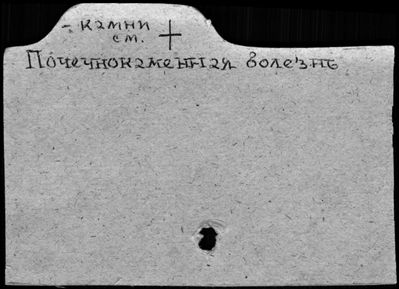 - камни
см. +
Почечнокаменная болезнь